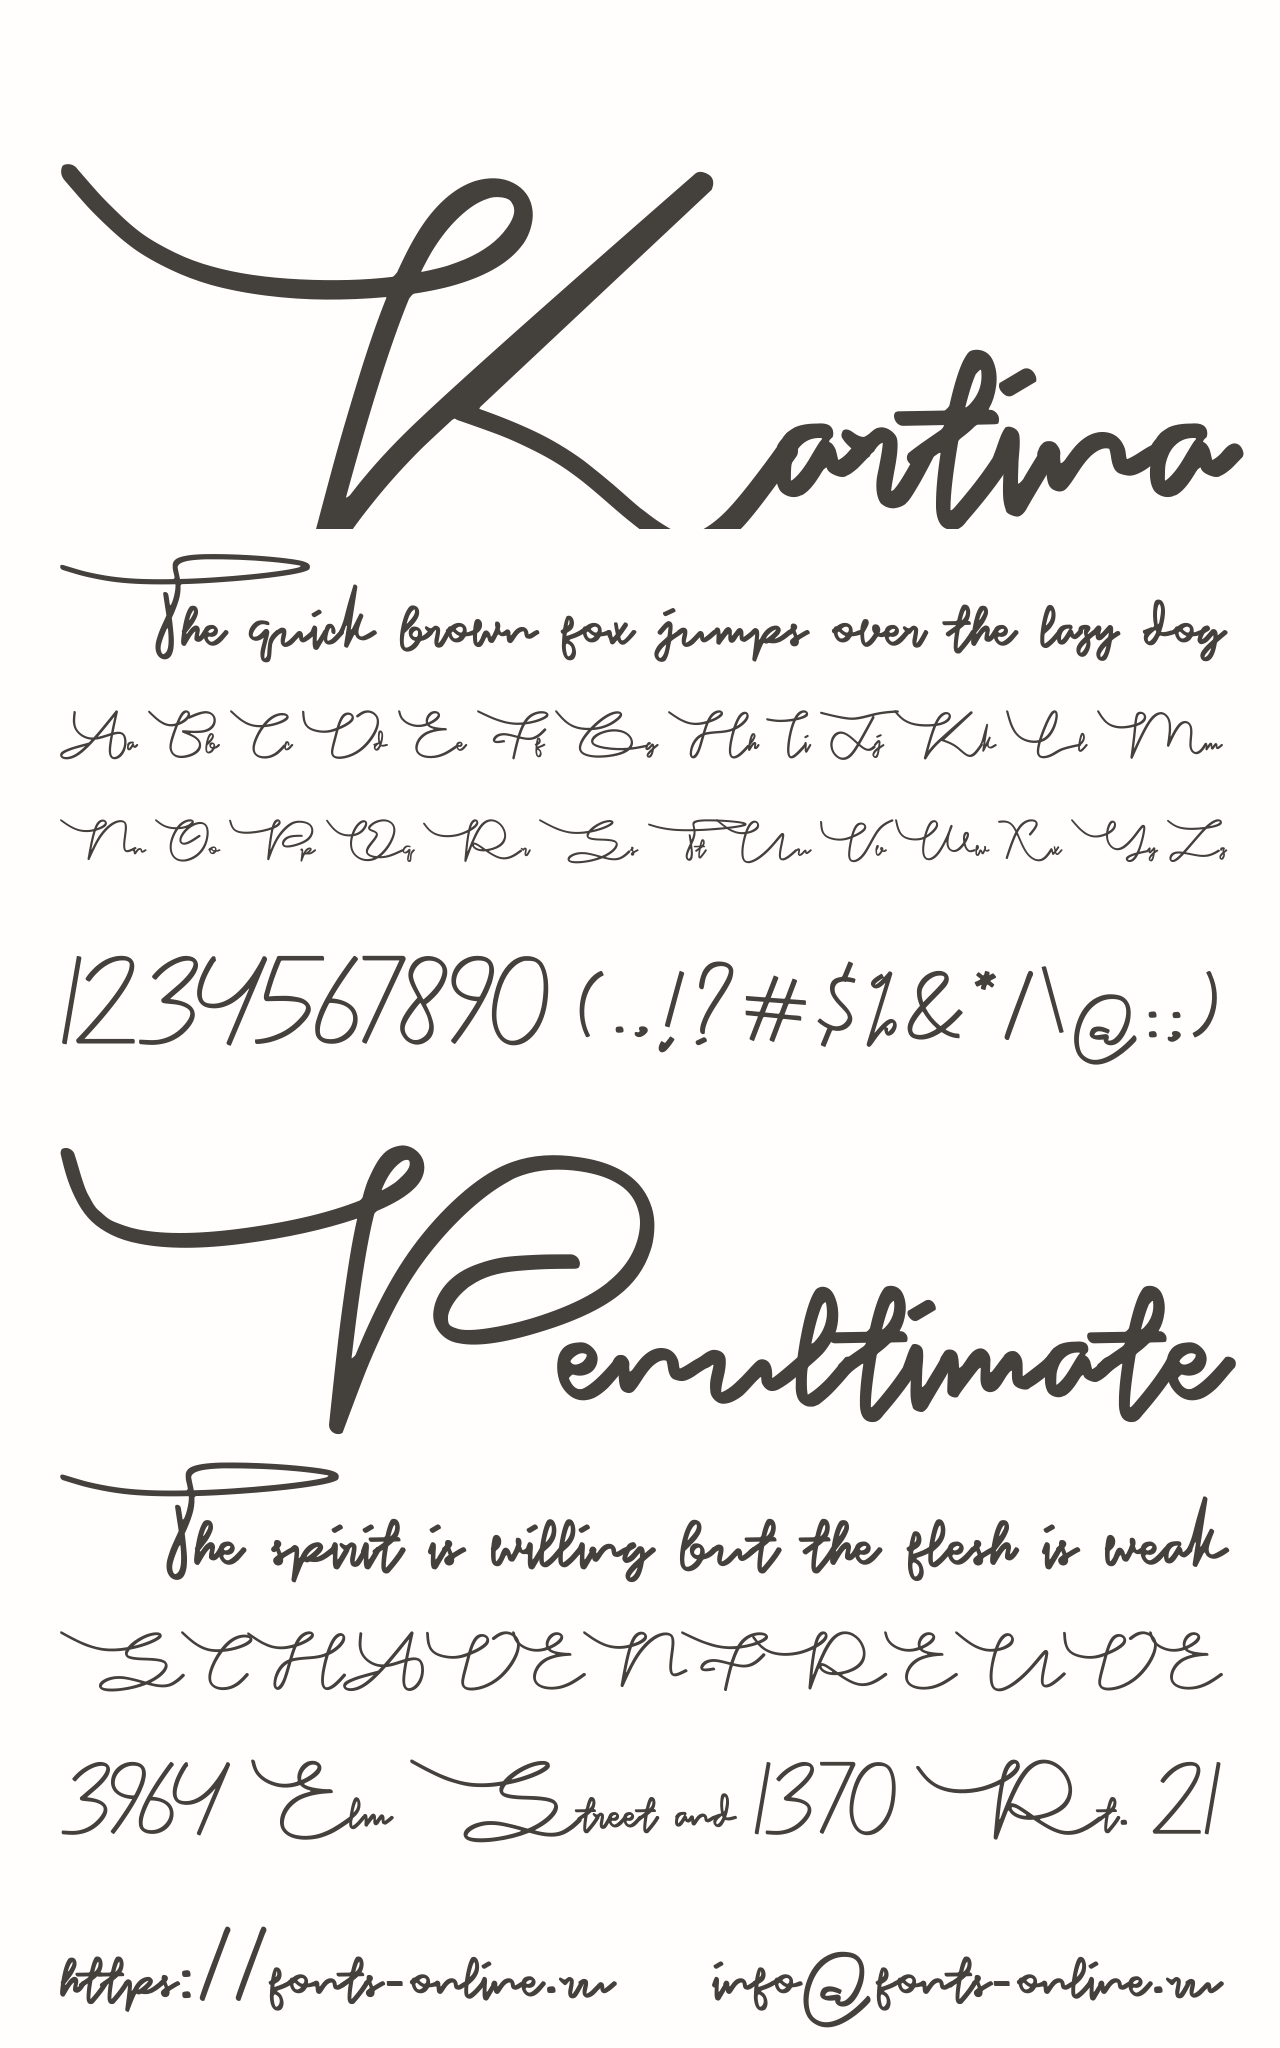 Kartina
The quick brown fox jumps over the lazy dog
Aa Bb Cc Dd Ee Ff Gg Hh Ii Jj Kk Ll Mm
Nn Oo Pp Qq Rr Ss Tt Uu Vv Ww Xx Yy Zz
1234567890 (.,!?#$%&*/\@:;)
Penultimate
The spirit is willing but the flesh is weak
SCHADENFREUDE
3964 Elm Street and 1370 Rt. 21
https://fonts-online.ru info@fonts-online.ru